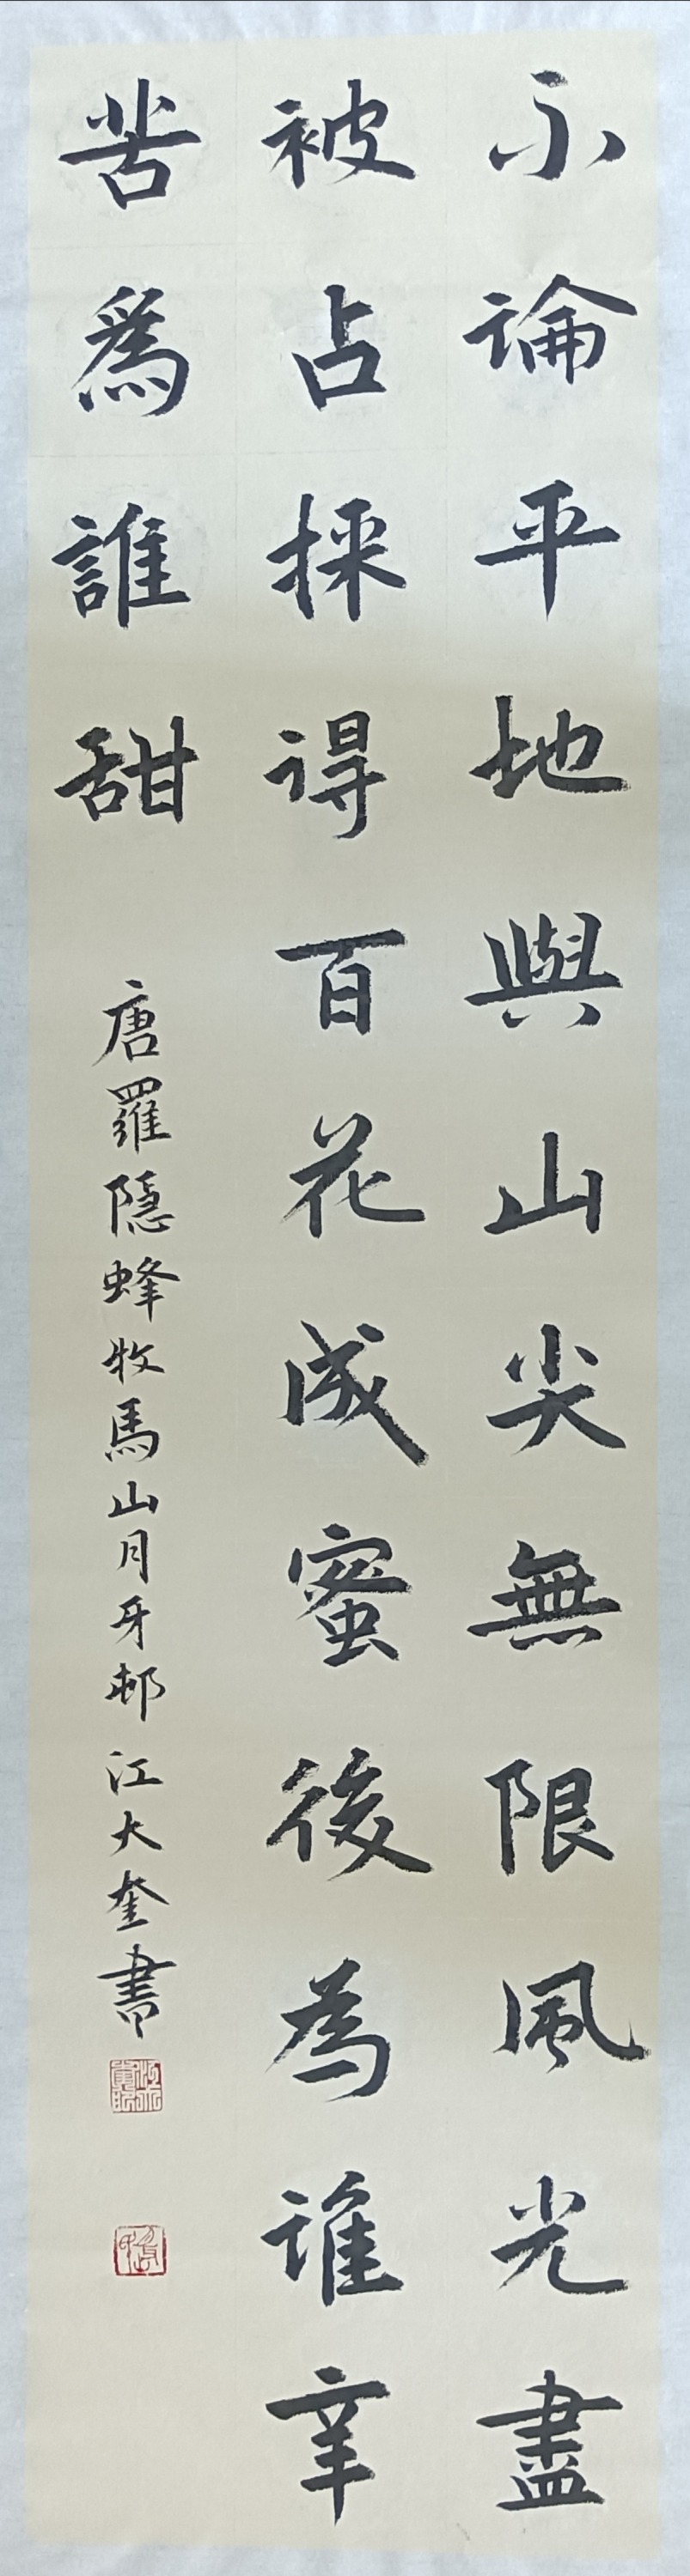 不論平地與山尖無限風光盡
被占採得百花成蜜後為誰辛
苦爲誰甜
唐羅隱蜂牧馬山月牙邨江大奎書